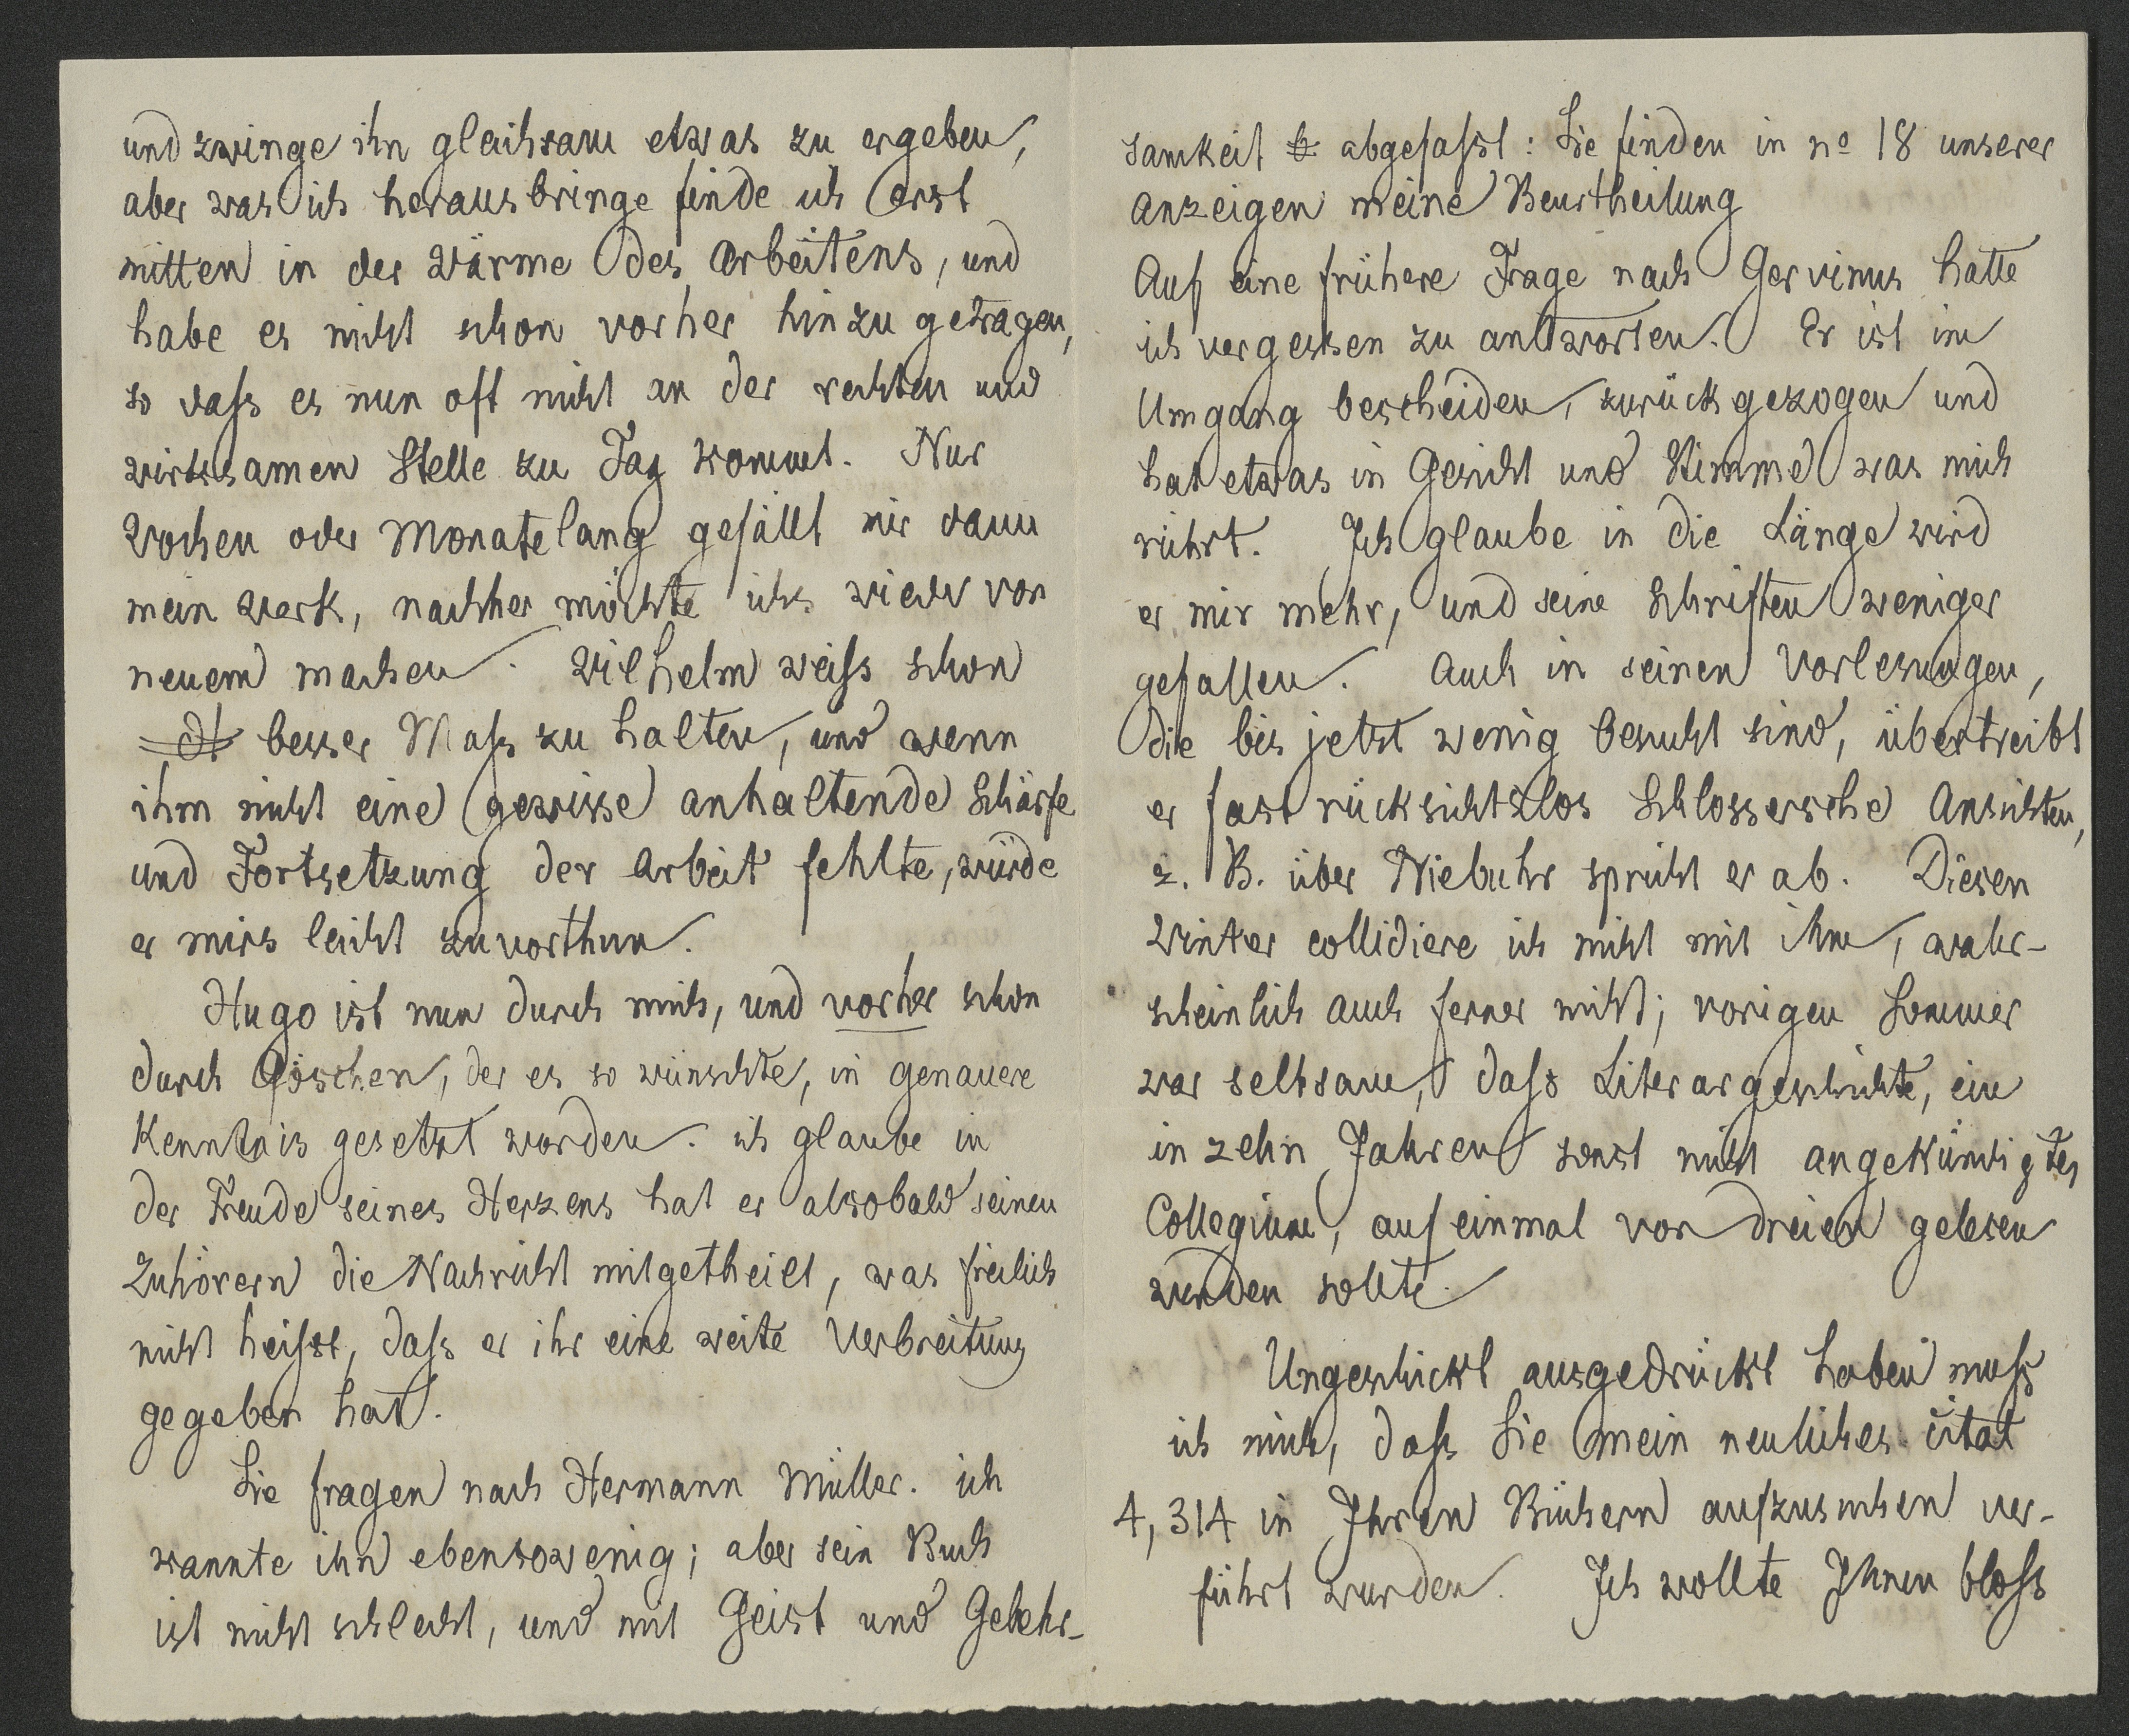 und zwinge ihn gleichsam etwas zu ergeben,
aber was ich herausbringe finde ich erst
mitten in der Wärme des Arbeitens, und
habe es nicht schon vorher hinzu getragen,
so dass es nun oft nicht an der rechten und
wirksamen Stelle zu Tag kommt. Nur
Wochen oder Monatelang gefällt mir dann
mein Werk, nachher möchte ichs wieder von
neuem machen. Wilhelm weiss schon
besser Mass zu halten, und wenn
ihm nicht eine gewisse anhaltende Schärfe
und Fortsetzung der Arbeit fehlte, würde
er mirs leicht zuvorthun.
Hugo ist nun durch mich, und vorher schon
durch Göschen, der es so wünschte, in genauere
Kenntnis gesetzt worden. ich glaube in
der Freude seines Herzens hat er alsobald seinen
Zuhörern die Nachricht mitgetheilt, was freilich
nicht heisst, dass er ihr eine weite Verbreitung
gegeben hat.
Sie fragen nach Hermann Müller. ich
kannte ihn ebensowenig; aber sein Buch
ist nicht schlecht, und mit Geist und Gelehr-
samkeit abgefasst: Sie finden in no 18 unserer
Anzeigen meine Beurtheilung
Auf eine frühere Frage nach Gervinus hatte
ich vergessen zu antworten. Er ist im
Umgang bescheiden, zurückgezogen und
hat etwas in Gesicht und Stimme was mich
rührt. Ich glaube in die Länge wird
er mir mehr, und seine Schriften weniger
gefallen. Auch in seinen Vorlesungen,
die bis jetzt wenig besucht sind, übertreibt
er fast rücksichtslos Schlossersche Ansichten,
z. B. über Niebuhr spricht er ab. Diesen
Winter collidiere ich nicht mit ihm, wahr-
scheinlich auch ferner nicht; vorigen Sommer
war seltsam, dass Literargeschichte, ein
in zehn Jahren sonst nicht angekündigtes
Collegium, auf einmal von dreien gelesen
werden sollte.
Ungeschickt ausgedrückt haben muss
ich mich, dass Sie mein neuliches citat
4, 314 in Ihren Büchern aufzusuchen ver-
führt wurden. Ich wollte Ihnen bloss